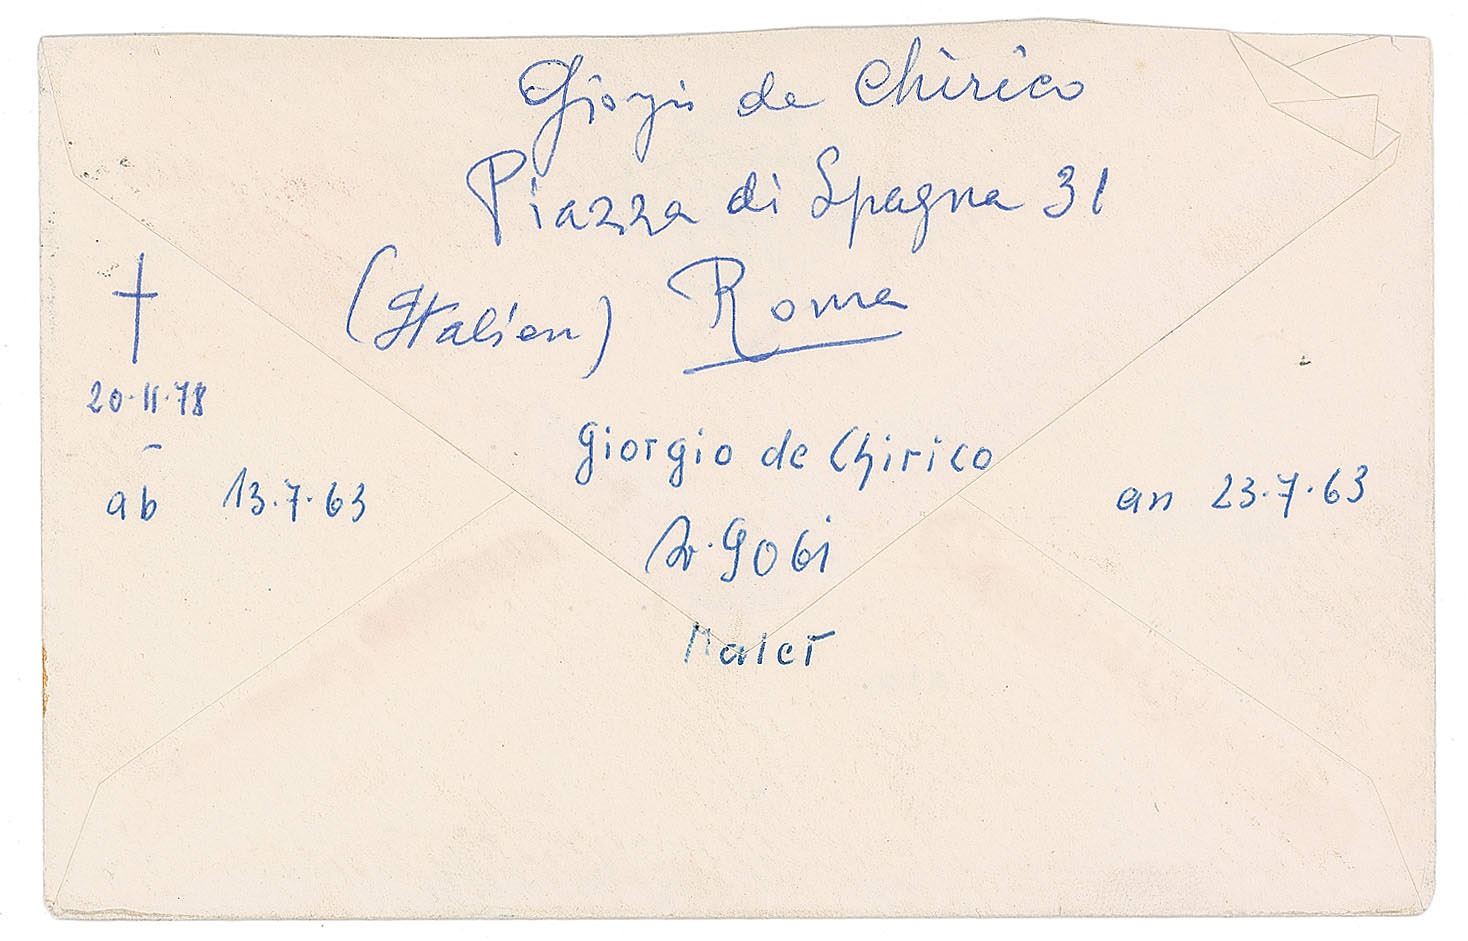 Giorgio de Chirico
Piazza di Spagna 31
(Italien) Roma
†
20·11·78
–
ab 13·7·63
Giorgio de Chirico
an 23·7·63
Maler